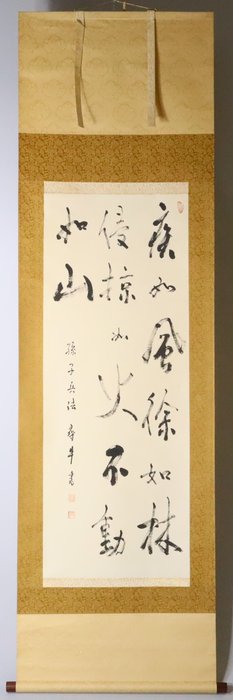 疾如風徐如林
侵掠如火不動
如山
孫子兵法 壽牛書